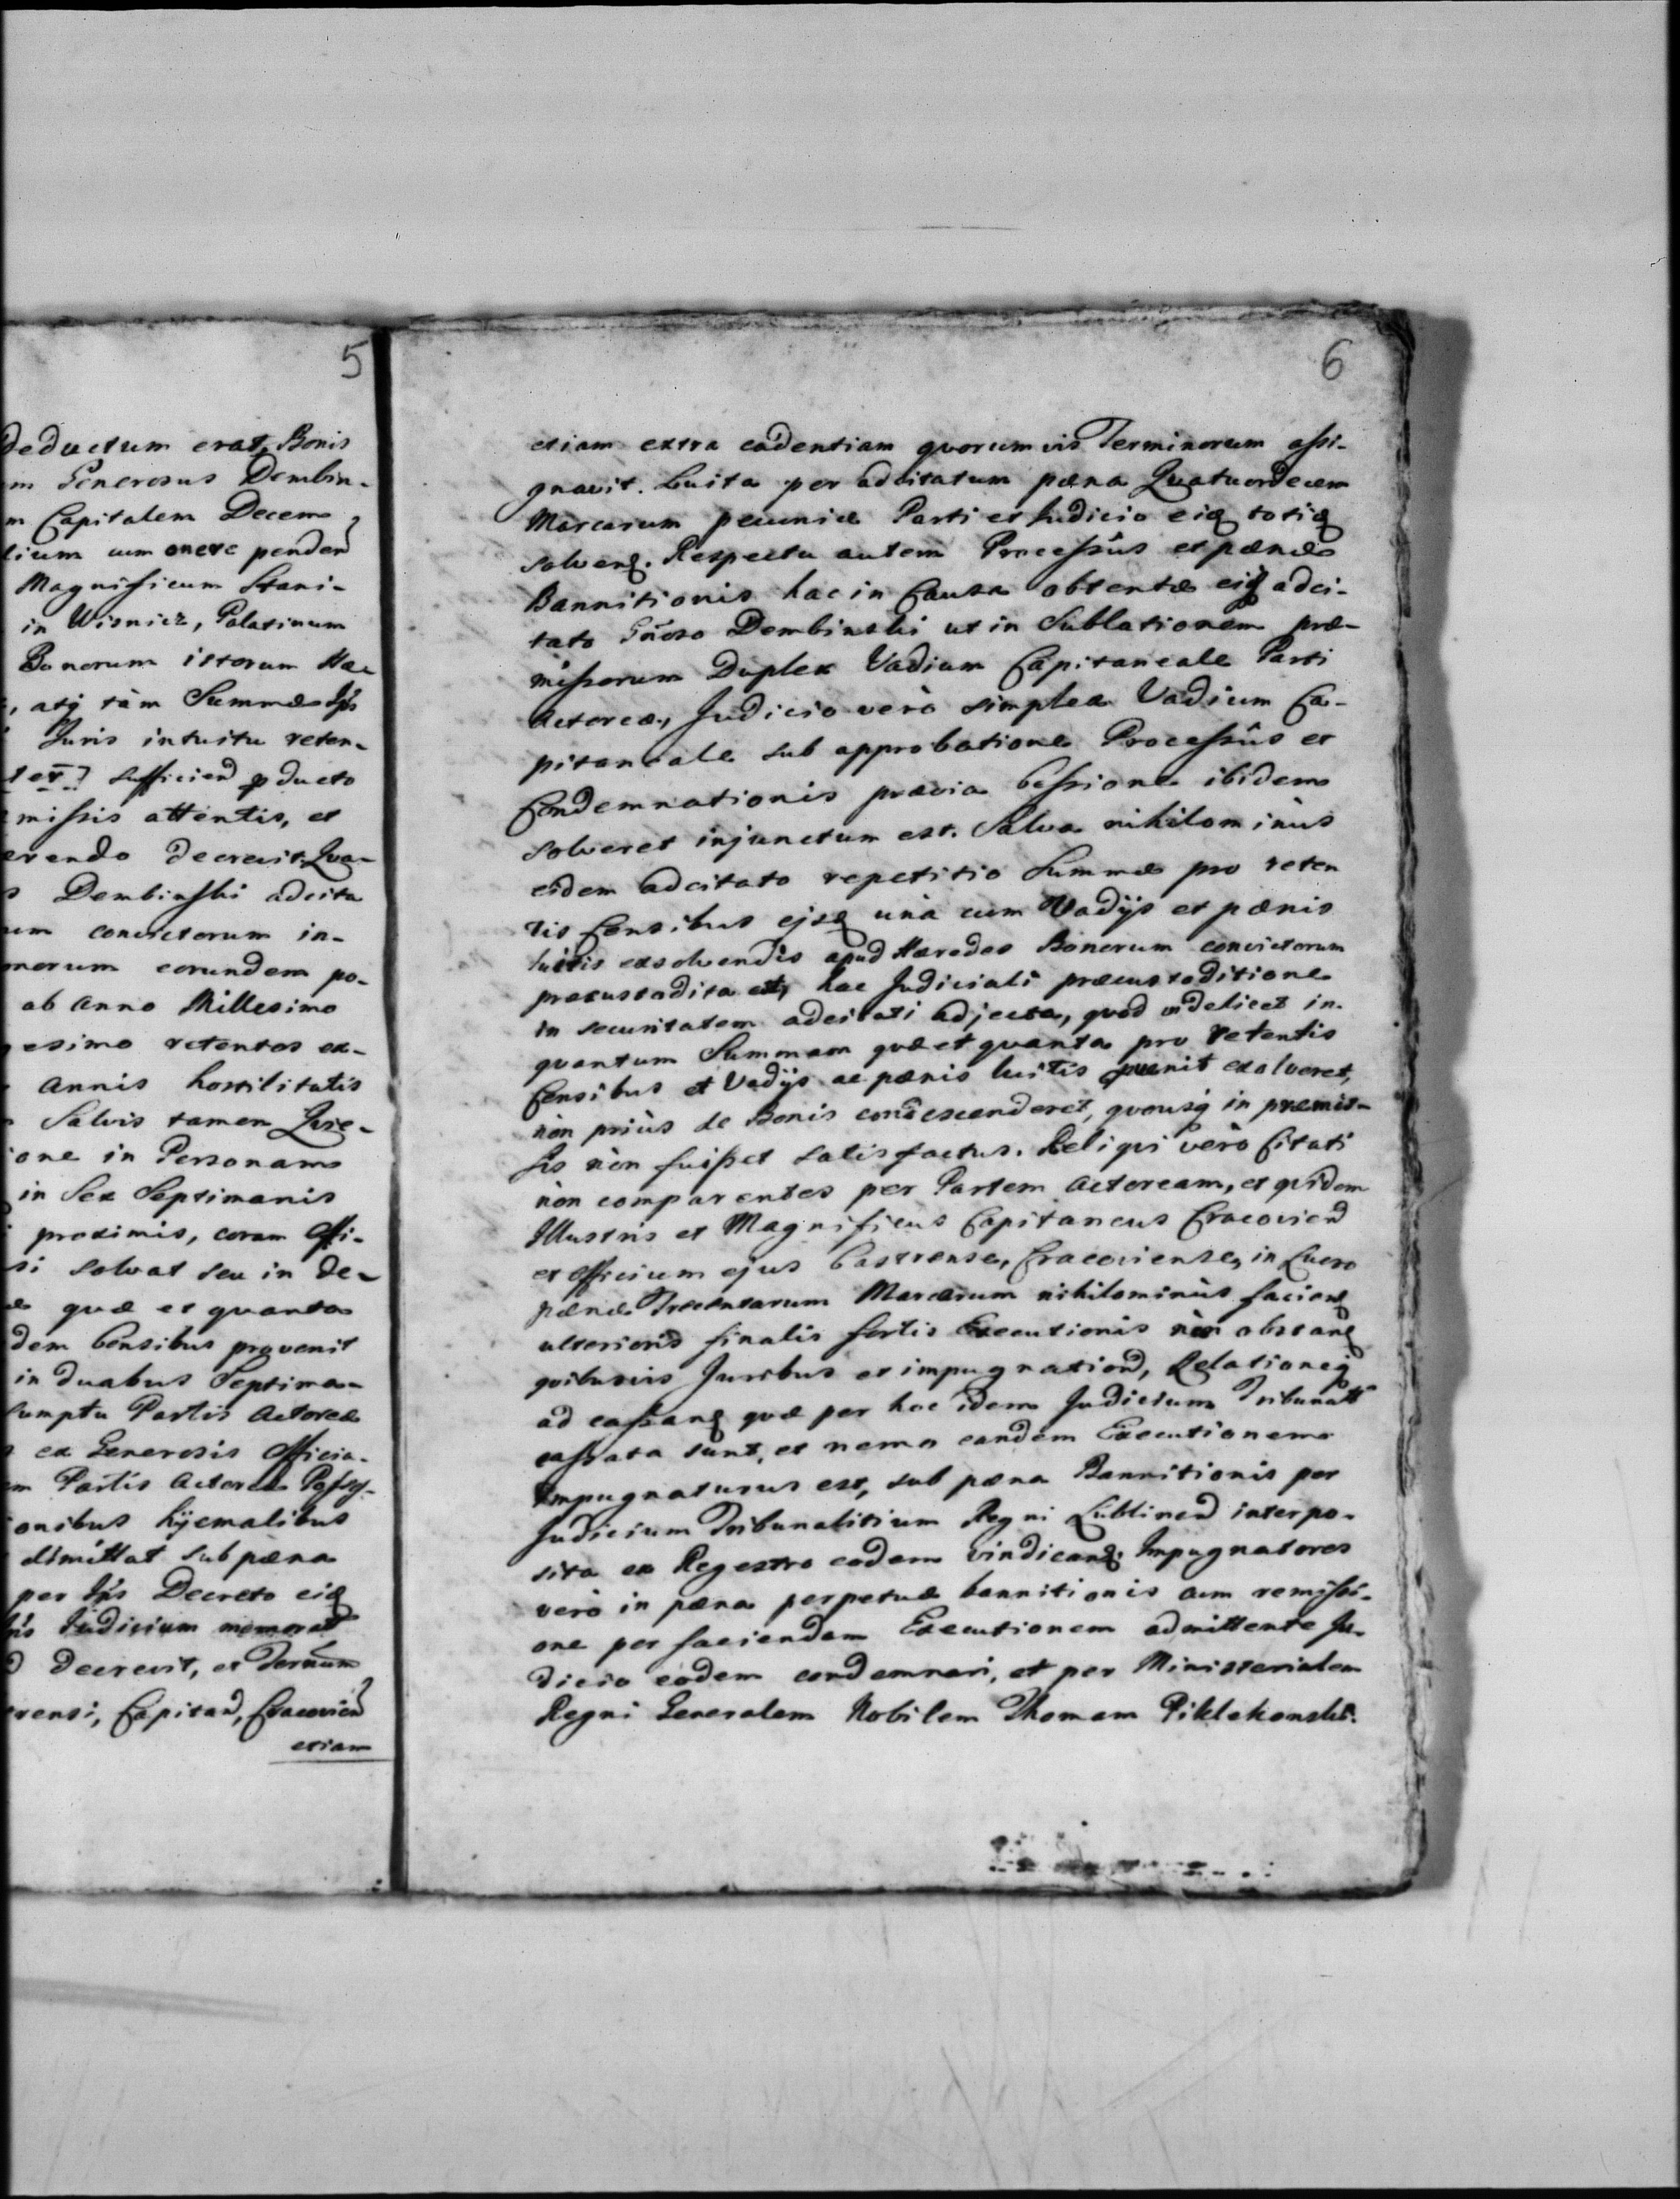 5
deductum erat, Bonis
m Generosus Dembin-
m Capitalem Decem
lium cum onere penden
Magnificum Stani-
in Wisnicz, Palatinum
Bonorum istorum Hæ-
, atq tàm Summæ Ipś
Juris intuitu reten-
sufficien ducto
missis attentis, et
erendo decrevit, Qva-
s Dembinski adcita
um convictorum in-
norum eorundem po-
ab Anno Millesimo
gesimo retentos ex-
Annis hostilitatis
Salvis tamen Qvie-
ione in Personam
in Sex Septimanis
proximis, coram Offi-
si solvat seu in de-
quæ et quanta
dem Censibus provenit
in duabus Septima-
sumptu Partis Actoreæ
ex Generosis Officia-
m Partis Actoreæ Possess-
onibus hÿemalibus
dimittat sub pæna
per Ipś Decreto eiq
Judicium memorat
decrevit, et Termūm
rensi, Capitan, Cracovien
etiam
6
etiam extra cadentiam qvorumvis Terminorum assi-
gnavit. Luita per adcitatum pæna Qvatuordecem
Marcarum pecuniæ Parti et Judicio eiq totiq
solven. Respectu autem Processûs et pænæ
Bannitionis hac in Causa obtentæ eiq adci-
tato Gñoso Dembinski ut in Sublationem præ-
missorum Duplex Vadium Capitaneale Parti
Actoreæ, Judicio verò simplex Vadium Ca-
pitaneale sub approbatione Processûs et
Condemnationis prævia Cessione ibidem
solveret injunctum est. Salva nihilominùs
eidem adcitato repetitio Summæ pro reten
tis Censibus ejsq unà cum Vadijs et pænis
luitis exsolvendis apud Hæredes Bonorum convictorum
præcustodita est, hac Judiciali præcustoditione
in securitatem adcitati adjecta, quod videlicet in-
quantum Summam quæ et quanta pro retentis
Censibus et Vadijs ac pænis luitis provenit exolveret,
nòn priùs de Bonis condescenderet, qvousq in præmis-
sis nòn fuisset satisfactus. Reliqvi verò Citati
nòn comparentes per Partem Actoream, et qvidem
Illustris et Magnificus Capitaneus Cracovien
et Officium ejus Castrense, Cracoviense, in Lucro
pænæ Trecentarum Marcarum nihilominùs facien
ulterioris finalis fortis Executionis nòn obstan
qvibusvis Juribus et impugnation, Relationeq
ad cassan quæ per hoc idem Judicium Tribunal
cassata sunt, et nemo eandem Executionem
impugnaturus est, sub pæna Bannitionis per
Judicium Tribunalitium Regni Lublinen interpo-
sita ex Regestro eodem vindican. Impugnatores
verò in pæna perpetuæ bannitionis cum remissi-
one per faciendam Executionem admittente Ju-
dicio eodem condemnari, et per Ministerialem
Regni Generalem Nobilem Thomam Piklekonski.